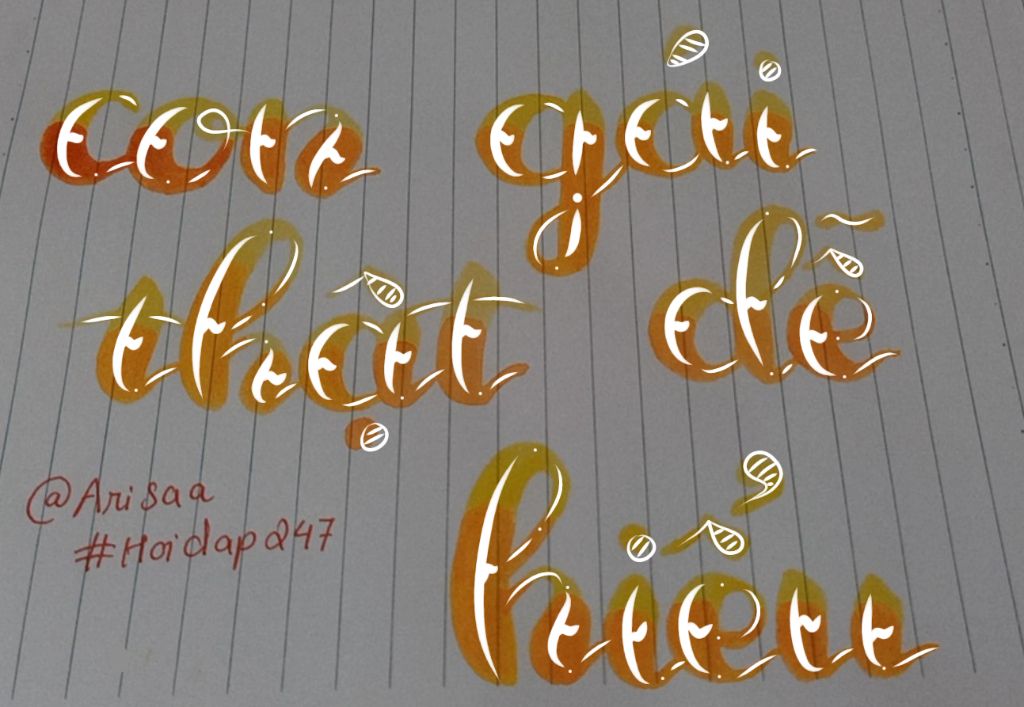 con gái
thật dễ
hiểu
@Arisaa
#Hoidap247